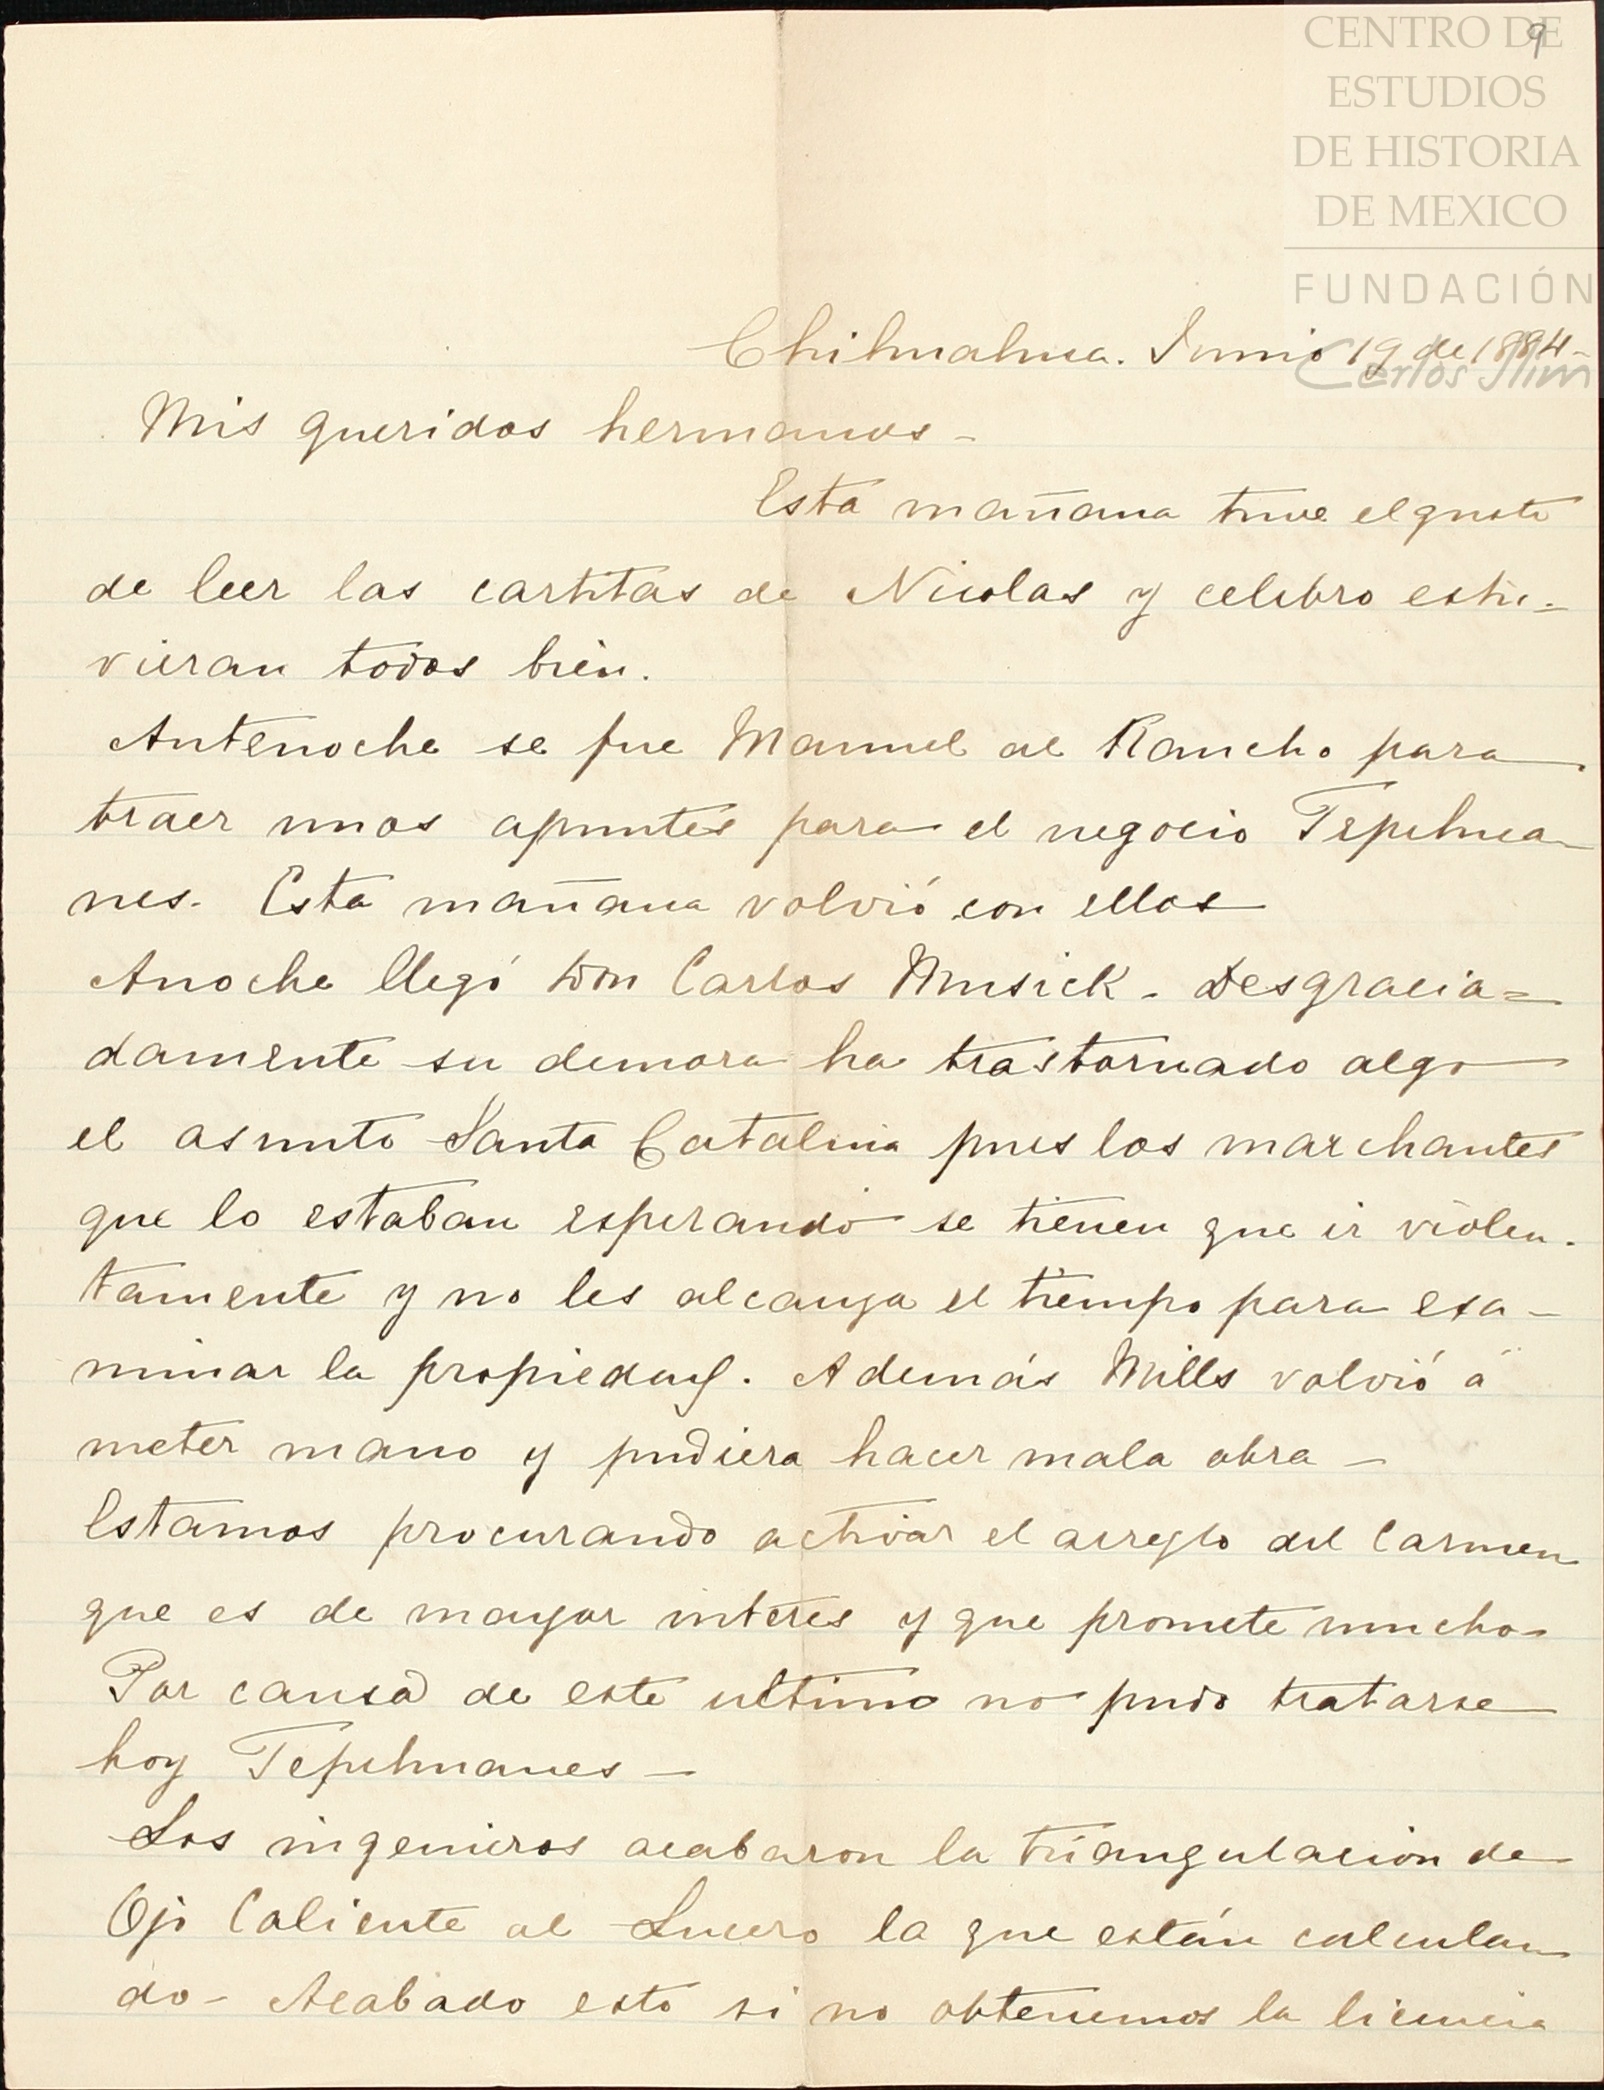 CENTRO DE
ESTUDIOS
DE HISTORIA
DE MEXICO
FUNDACIÓN
Carlos Slim
9
Chihuahua. Junio 19 de 1884-
Mis queridos hermanos -
Esta mañana tuve el gusto
de leer las cartitas de Nicolas y celebro estu-
vieran todos bien.
Antenoche se fue Manuel al Rancho para
traer unos apuntes para el negocio Tepehua-
nes. Esta mañana volvió con ellos
Anoche llegó don Carlos Musick - Desgracia=
damente su demora ha trastornado algo
el asunto Santa Catalina pues los marchantes
que lo estaban esperando se tienen que ir violen-
tamente y no les alcanza el tiempo para exa-
minar la propiedad. Además Mills volvió á
meter mano y pudiera hacer mala obra -
Estamos procurando activar el arreglo del Carmen
que es de mayor interes y que promete mucho-
Por causa de este ultimo no pudo tratarse
hoy Tepehuanes -
Los ingenieros acabaron la triangulacion de
Ojo Caliente al Lucero la que están calculan
do - Acabado esto si no obtenemos la licencia